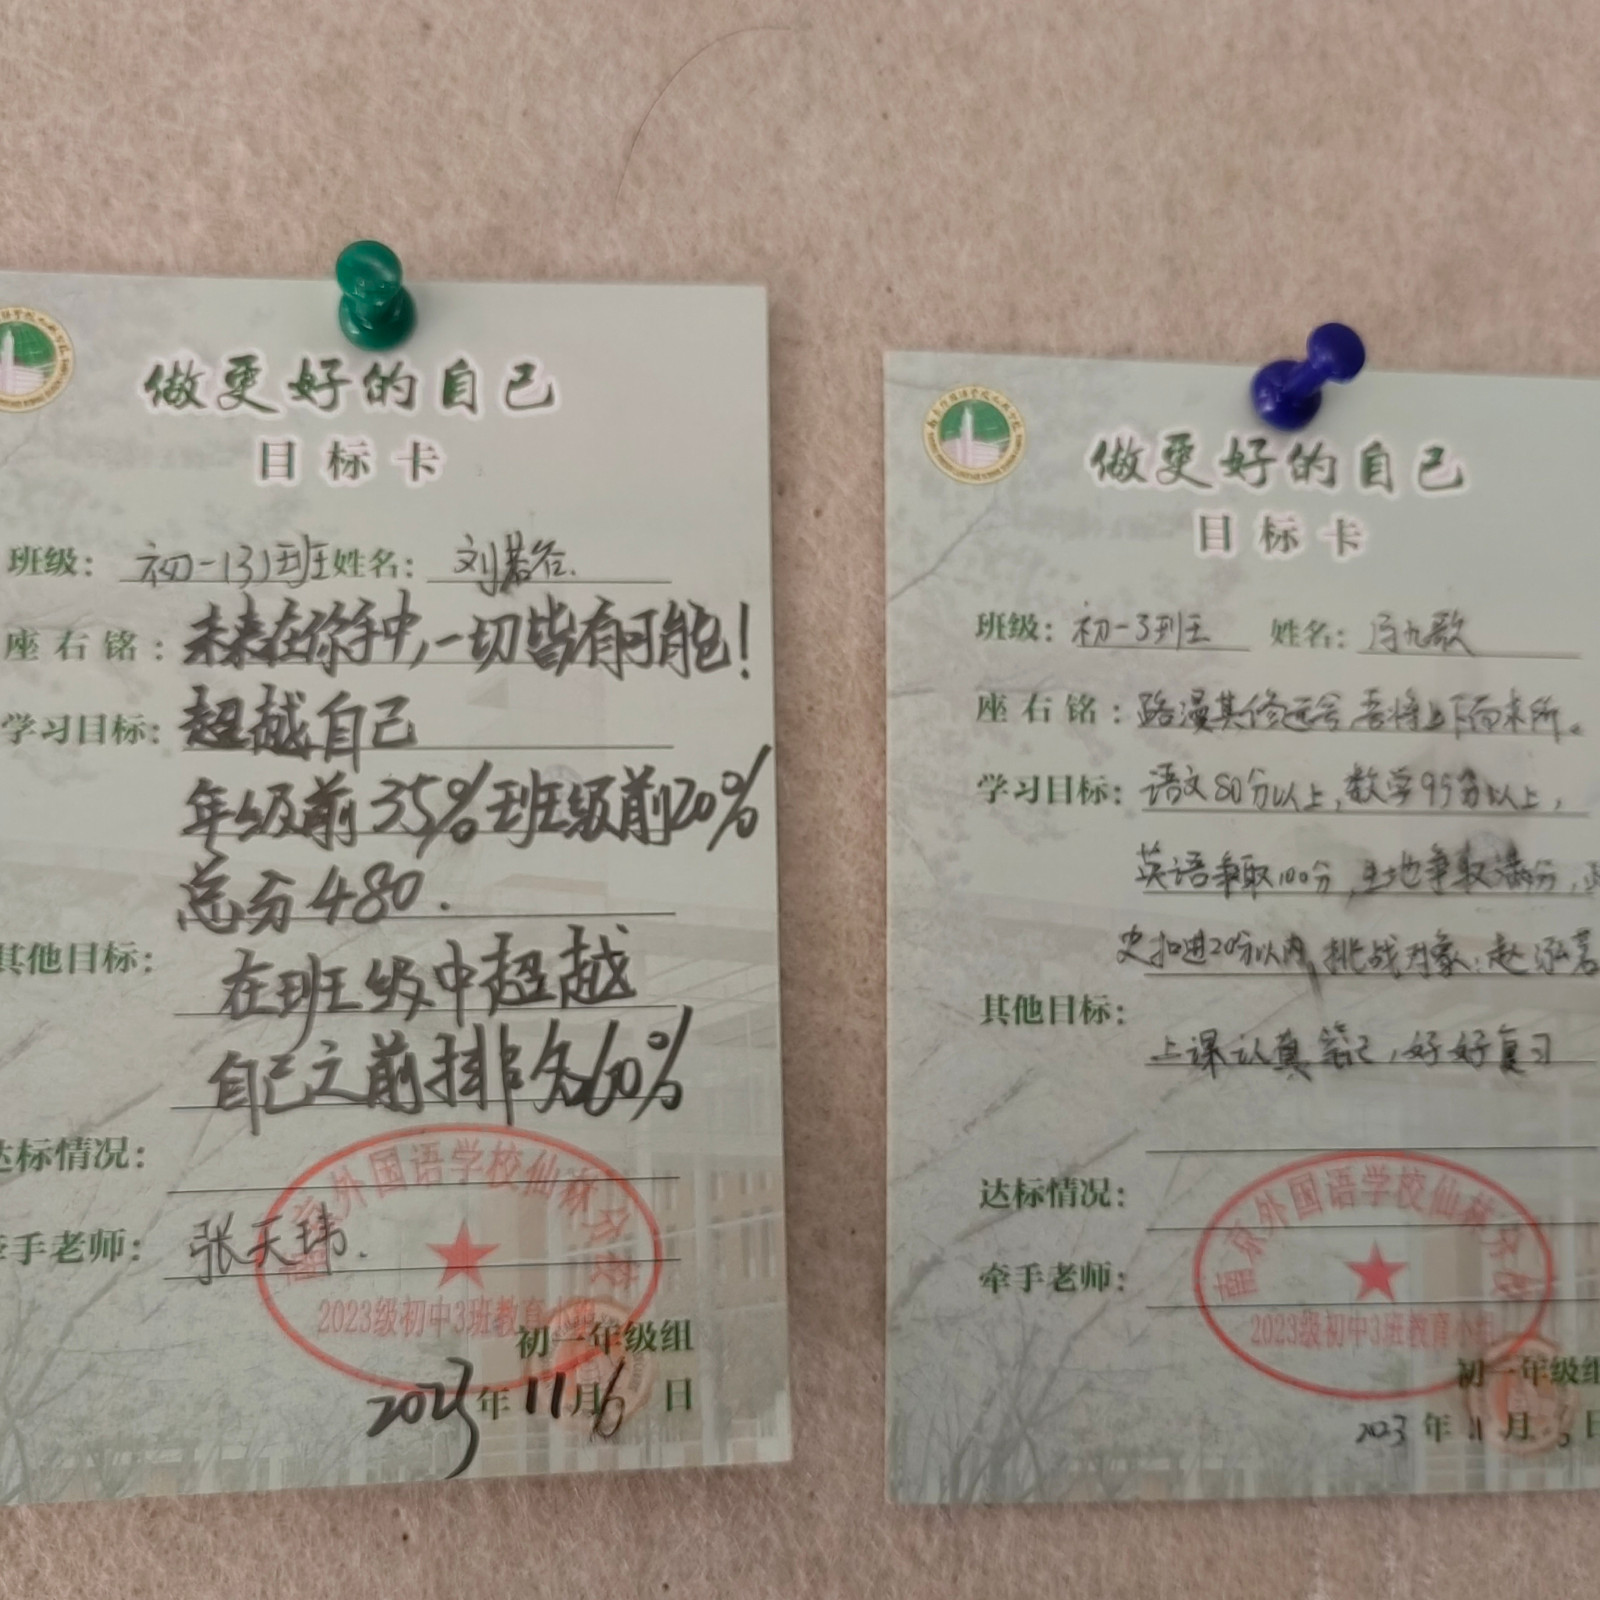 做更好的自己
目标卡
班级: 初一(3)班 姓名: 刘若谷.
座右铭: 未来在你手中,一切皆有可能!
学习目标: 超越自己
年级前35% 班级前20%
总分480.
其他目标: 在班级中超越
自己之前排名60%
达标情况:
牵手老师: 张天玮.
南京外国语学校仙林分校
2023级初中3班教育小组
初一年级组
2023年11月6日
做更好的自己
目标卡
班级: 初一3班 姓名: 九歌
座右铭: 路漫其修远兮,吾将上下而求所。
学习目标: 语文80分以上,数学95分以上,
英语争取100分,生地争取满分,
史扣进20分以内,挑战对象:赵泓
其他目标: 上课认真笔记,好好复习
达标情况:
牵手老师:
南京外国语学校仙林分校
2023级初中3班教育小组
初一年级组
2023年11月 日